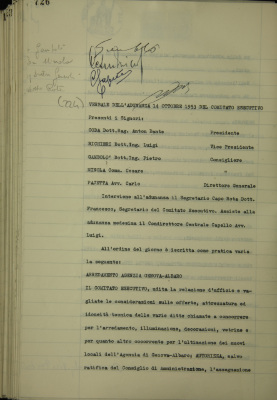 726
(724)
VERBALE DELL'ADUNANZA 14 OTTOBRE 1953 DEL COMITATO ESECUTIVO
Presenti i Signori:
Dott.Ing. Anton Dante Presidente
Dott.Ing. Luigi Vice Presidente
Dott.Ing. Pietro Consigliere
Comm. Cesare "
Avv. Carlo Direttore Generale
Interviene all'adunanza il Segretario Capo Rota Dott.
Francesco, Segretario del Comitato Esecutivo. Assiste alla
adunanza medesima il Condirettore Centrale Capello Avv.
Luigi.
All'ordine del giorno è iscritta come pratica varia
la seguente:
ARREDAMENTO AGENZIA GENOVA-ALBARO
IL COMITATO ESECUTIVO, udita la relazione d'ufficio e va-
gliate le considerazioni sulle offerte, attrezzatura ed
idoneità tecnica delle varie ditte chiamate a concorrere
per l'arredamento, illuminazione, decorazioni, vetrine e
per quanto altro occorrente per l'ultimazione dei nuovi
locali dell'Agenzia di Genova-Albaro; AUTORIZZA, salvo
ratifica del Consiglio di Amministrazione, l'assegnazione